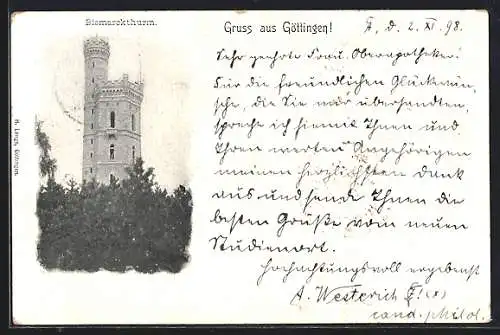 Bismarckthurm.
Gruss aus Göttingen!
d. 2. XI. 98.
Sehr geehrte Frau Oberapotheker!
Für die freundlichen Glückwün-
sche, die Sie mir übersandten,
spreche ich hiemit Ihnen und
Ihren werten Angehörigen
meinen herzlichsten Dank
aus und sende Ihnen die
besten Grüße vom neuen
Studienort.
Hochachtungsvoll ergebenst
A. Westerich
cand. philol.
H. Lange, Göttingen.